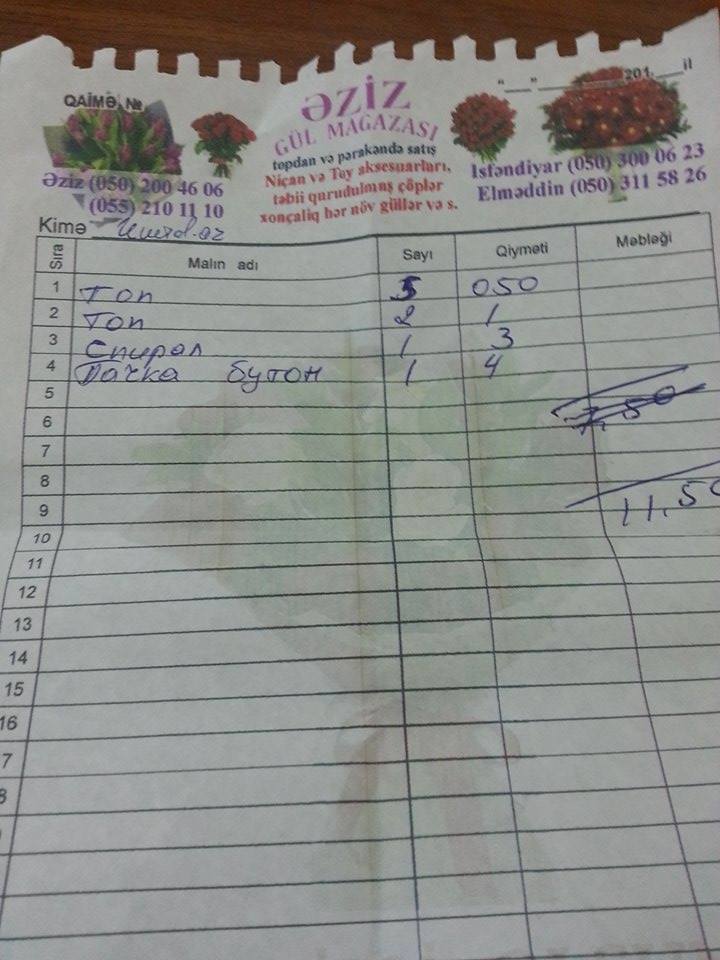 "___" ________ 201.___il
QAİMƏ №
ƏZİZ
GÜL MAGAZASI
topdan və pərakəndə satış
Nişan və Toy aksesuarları,
təbii qurudulmuş çöplər
xonçaliq hər növ güllər və s.
Əziz (050) 200 46 06
(055) 210 11 10
Isfəndiyar (050) 300 06 23
Elməddin (050) 311 58 26
Kimə
Sıra Malın adı Sayı Qiyməti Məbləği
1 Топ 5 050
2 Топ 2 1
3 Спирал 1 3
4 Пачка бутон 1 4
5
7,50
6
7
8
9 11,50
10
11
12
13
14
15
16
7
8